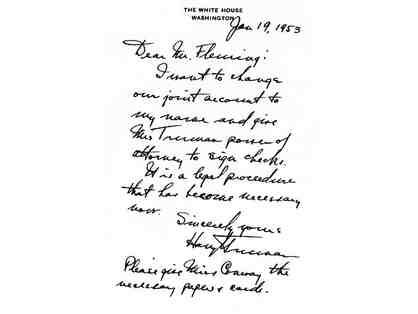 THE WHITE HOUSE
WASHINGTON
Jan 19, 1953
Dear Mr. Fleming:
I want to change
our joint account to
my name and give
Mrs Truman power of
attorney to sign checks.
It is a legal procedure
that has become necessary
now.
Sincerely yours
Harry Truman
Please give Miss Conway the
necessary papers & cards.